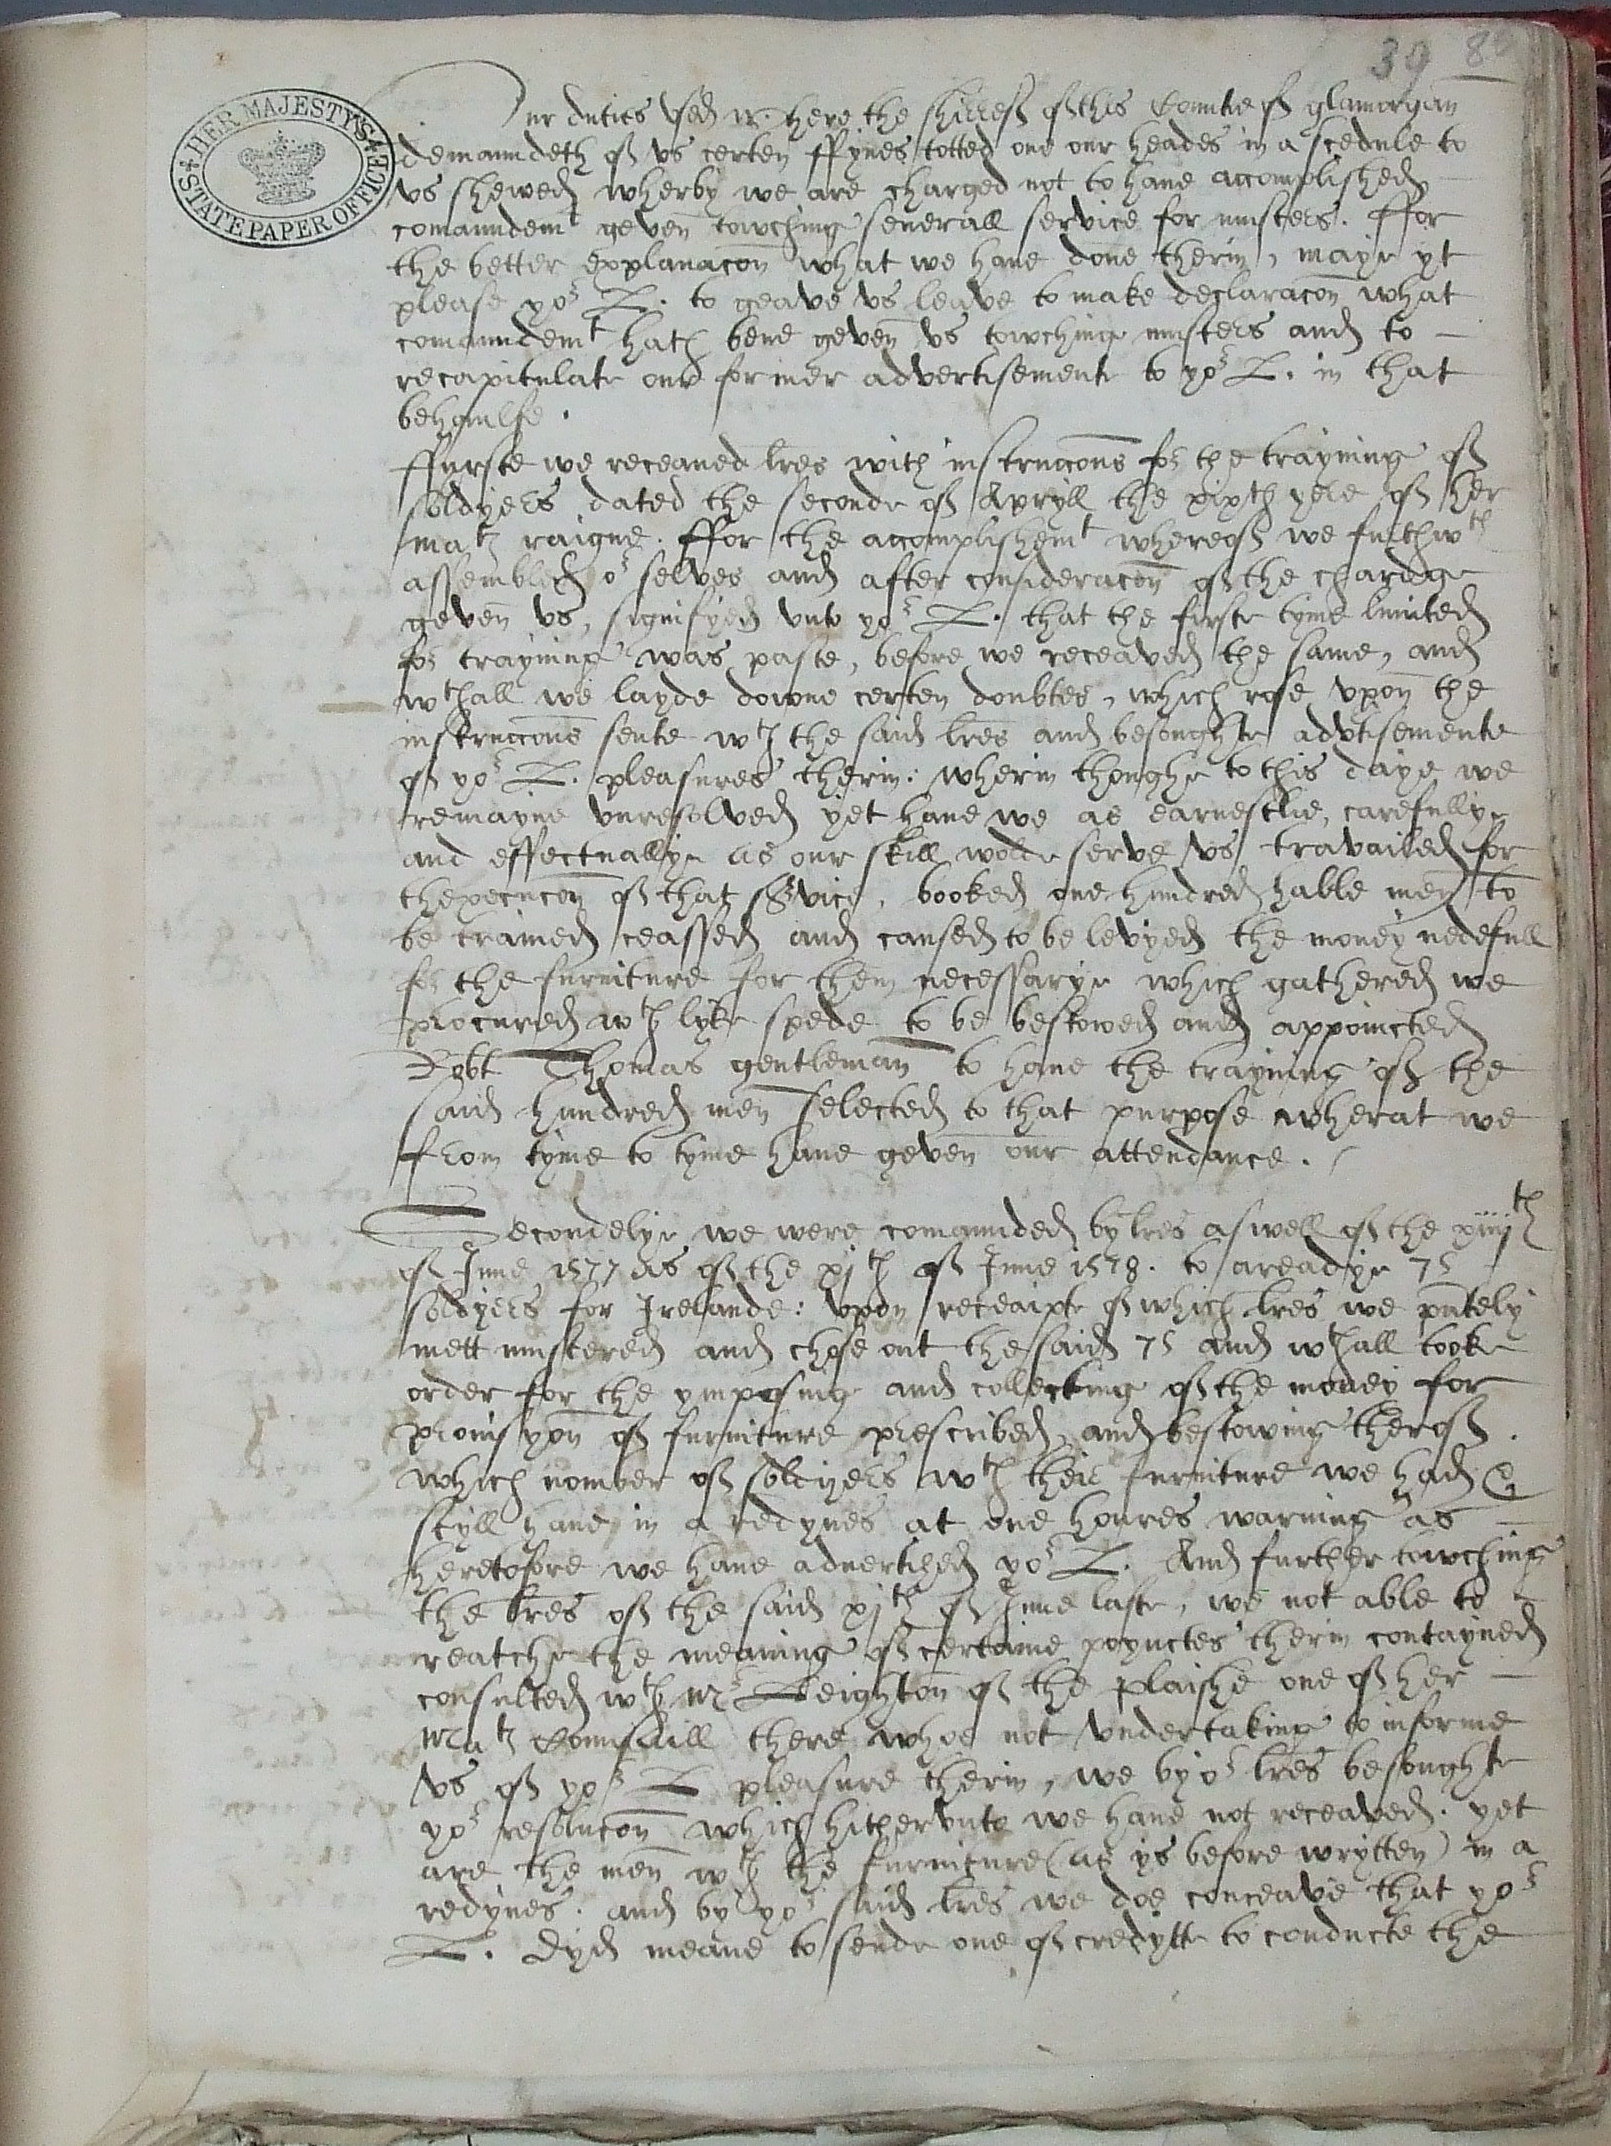 39 80
HER MAJESTY'S STATE PAPER OFFICE
Our duties vsed &c. here the shireff of this Countie of glamorgan
demaundeth of vs certen ffynes totted one our heades in a scedule to
vs shewed wherby we are charged not to haue accomplished
comaundemt geven towching seuerall service for musters. ffor
the better explanacon what we haue done therin, maye yt
please yor L. to geave vs leave to make declaracon what
comaundemt hath bene geven vs towching musters and to
recapitulate our former advertisemente to yor L. in that
behaulfe.
ffurste we receaued lres with instruccons for the trayning of
soldyers dated the seconde of Apryll the xixth yere of her
matz raigne. ffor the accomplishemt whereof we furthwth
assembled or selves and after consideracon of the chardge
geven vs, signifyed vnto yor L. that the firste tyme limited
for trayning was paste, before we receaved the same, and
wthall we layde downe certen doubtes, which rose vpon the
instruccons sente wth the said lres and besoughte advtisemente
of yor L. pleasures therin: wherin thoughe to this daye we
remayne vnresolved yet haue we as earnestlie, carefullye
and effectuallye as our skill wolde serve vs travailed for
thexecucon of that service, booked one hundred hable men to
be trained ceassed and caused to be levyed the money nedefull
for the furniture for them necessarye which gathered we
procured wth lyke spede to be bestowed and appoincted
Robt Thomas gentleman to haue the trayning of the
said hundred men selected to that purpose wherat we
from tyme to tyme haue geven our attendance.
Secondelye we were comaunded by lres aswell of the xiiijth
of June 1577 as of the xjth of June 1578. to areadye 75
soldyers for Irelande: vpon receaipte of which lres we pntely
mett mustered and chose out the said 75 and wthall tooke
order for the ymposing and collecting of the money for
prouisyon of furniture prescribed, and bestowing therof.
which nomber of soldyers wth their furniture we had &
styll haue in a redynes at one houres warning as
heretofore we haue aduertised yor L. And further towching
the lres of the said xjth of June laste, we not able to
reatche the meaning of certaine poynctes therin contayned
consulted wth Mr Leighton of the plaishe one of her
Matz Counsaill there whoe not vndertaking to informe
vs of yor L pleasure therin, we by or lres besoughte
yor resolucon which hithervnto we haue not receaved. yet
are the men wth the furniture (as ys before wrytten) in a
redynes. and by yor said lres we doe conceave that yor
L. dyd meane to sende one of credytte to conducte the